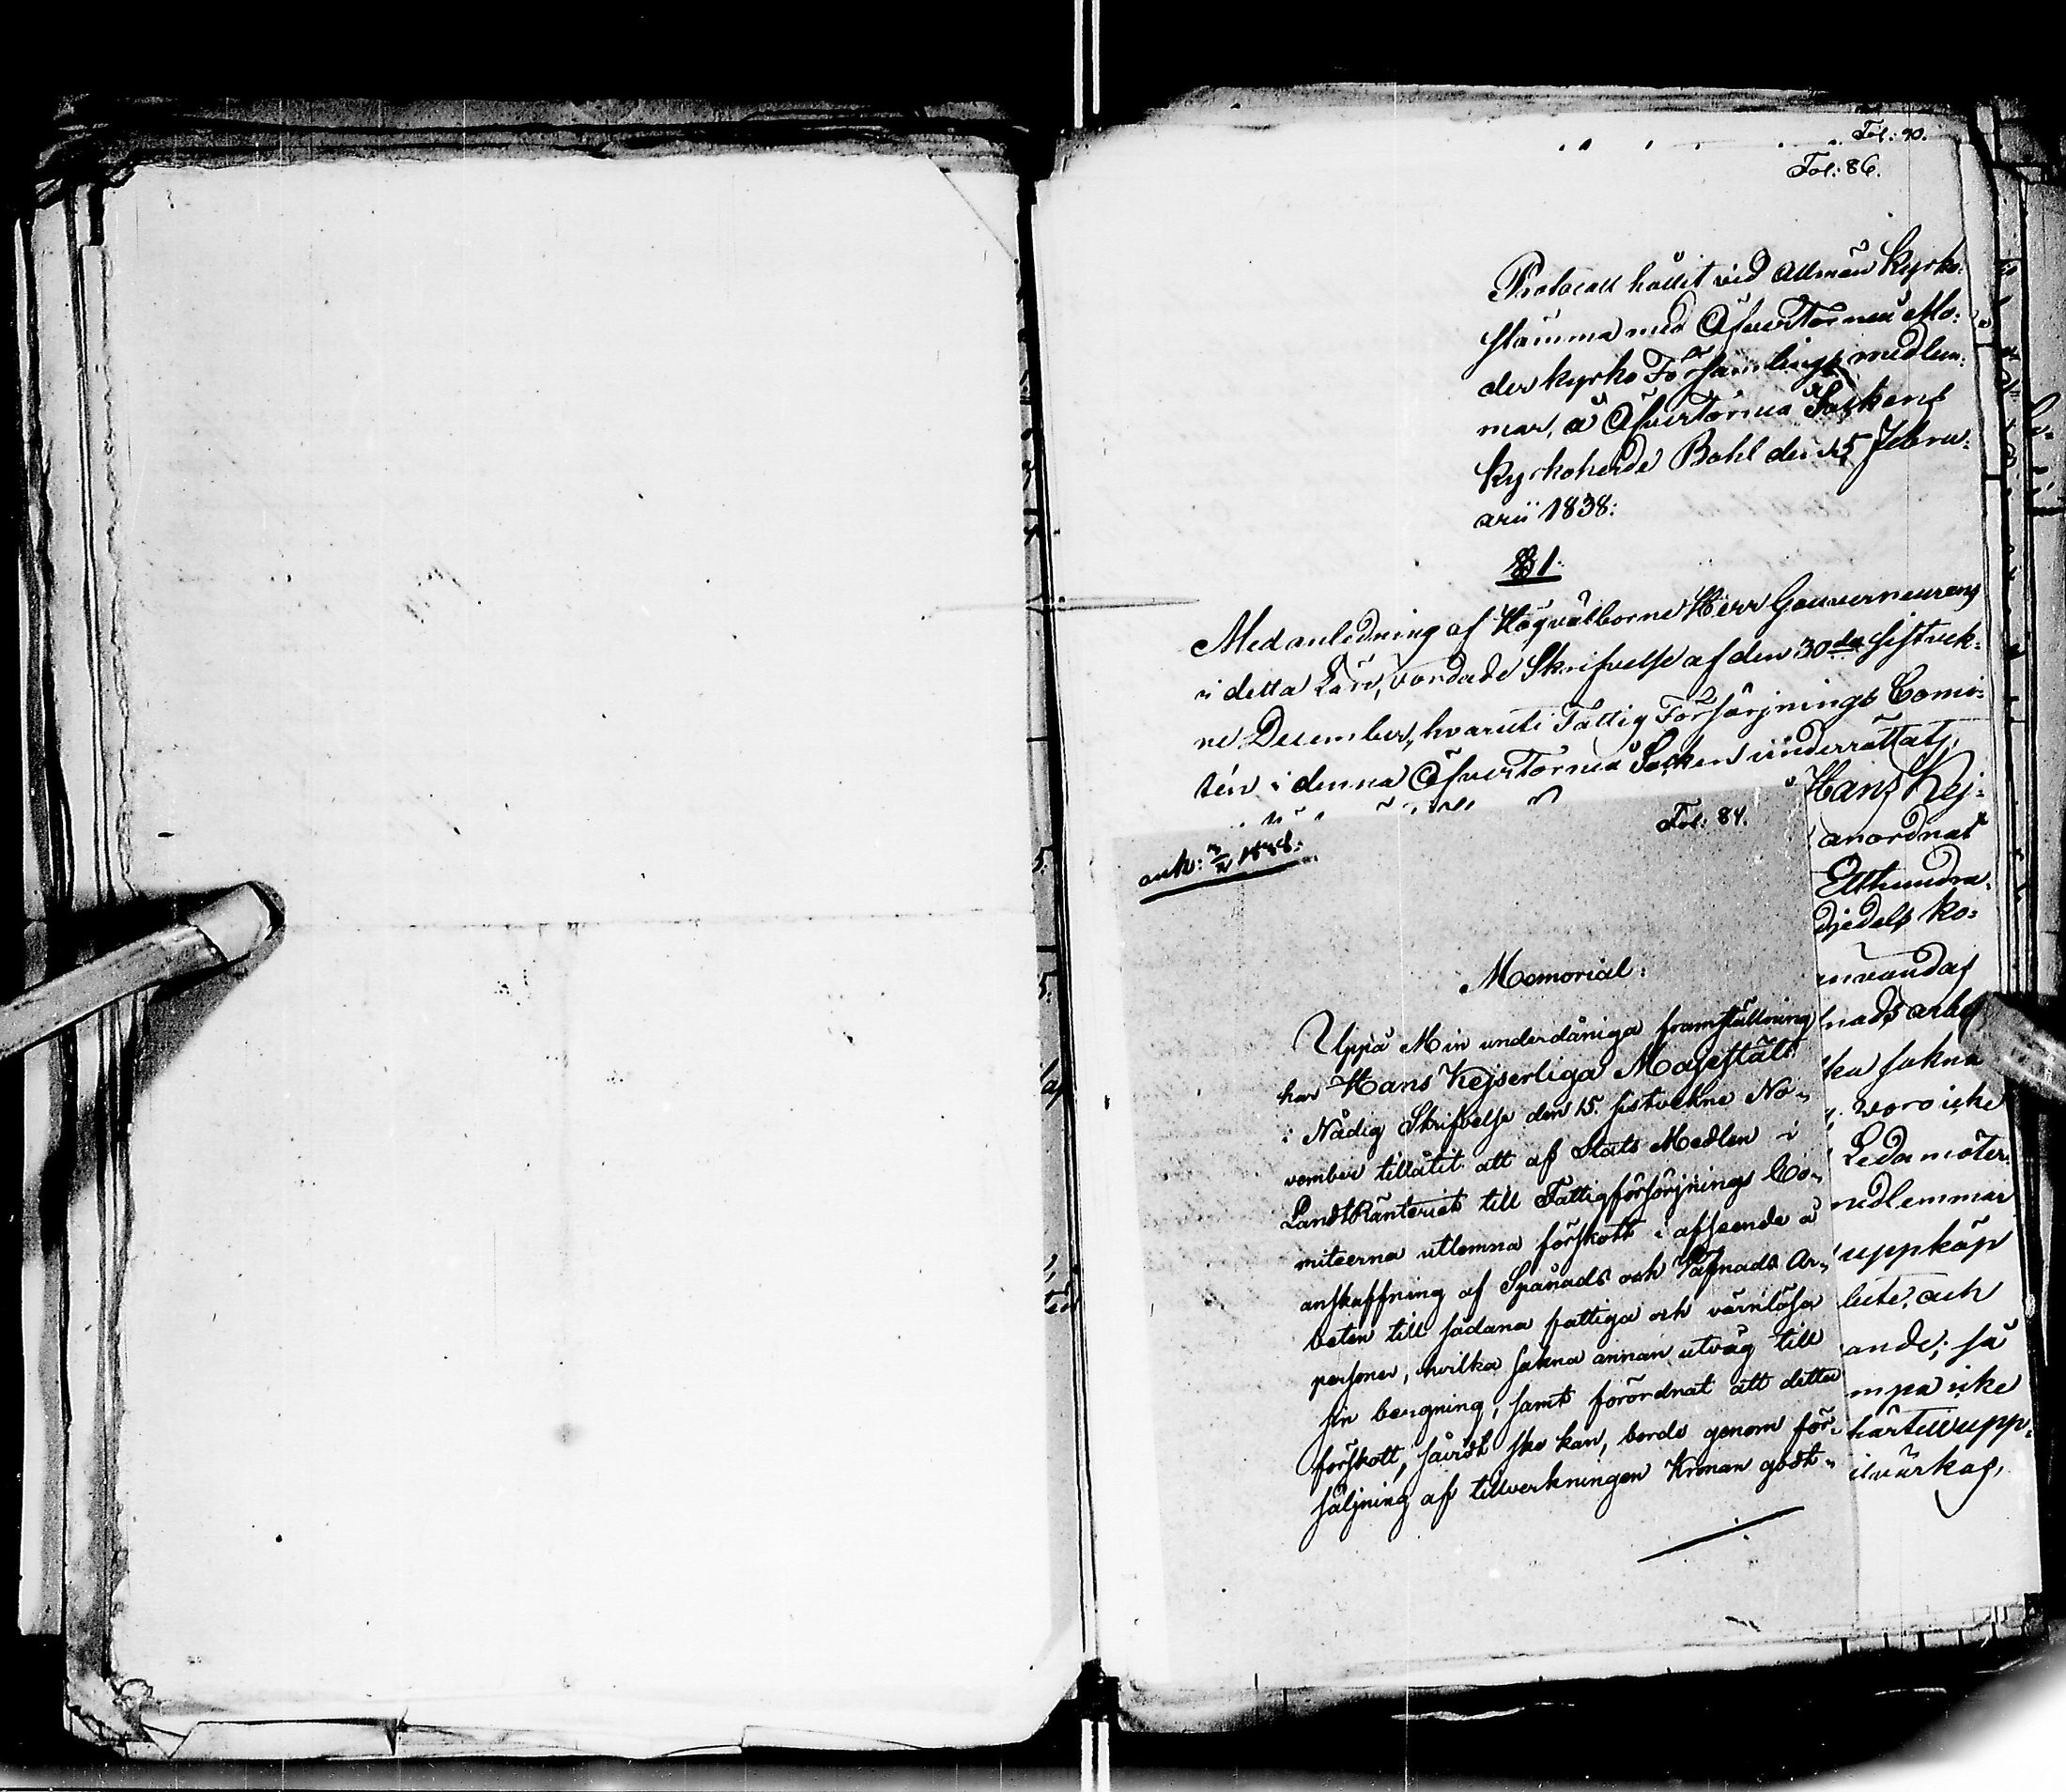 Fol: 90.
Fol: 86.
Protocoll hållit vid Allmän Kyrko-
stämma med ÖfverTorneå Mo-
derkyrko Församlings medlem-
mar, å Öfvertorneå Sockens
Kyrkoherde Bohl den 15 Febru-
arii 1838:
§ 1.
Med anledning af Högvälborne Herr Gouverneurens
i detta Län, vördade Skrifvelse af den 30de sistvek-
ne December, hvaruti Fattig Försörjnings Comi-
tén i denna ÖfverTorneå Socken underrättats,
Hans Kej-
anordnat
Etthundra-
djedels ko-
användas
nads arbe
ka sakna
woro icke
Ledamöter
medlemmar
uppköp
bete, och
ande; så
mpa icke
härtill upp-
ilvärkas,
Fol: 84.
ank: 3/2 1838:
Memorial:
Uppå Min underdåniga framställning
har Hans Kejserliga Majestät
i Nådig Skrifvelse den 15. sistvekne No-
vember tillåtit att af Stats Medlen i
LandtRänteriet till Fattigförsörjnings Co-
miteerna utlemna förskott i afseende å
anskaffning af Spånads och Väfnads Ar-
beten till sådana fattiga och värnlösa
personer, hvilka sakna annan utväg till
sin bergning, samt förordnat att detta
förskott, såvidt ske kan, borde genom för-
säljning af tillverkningen Kronan godt-